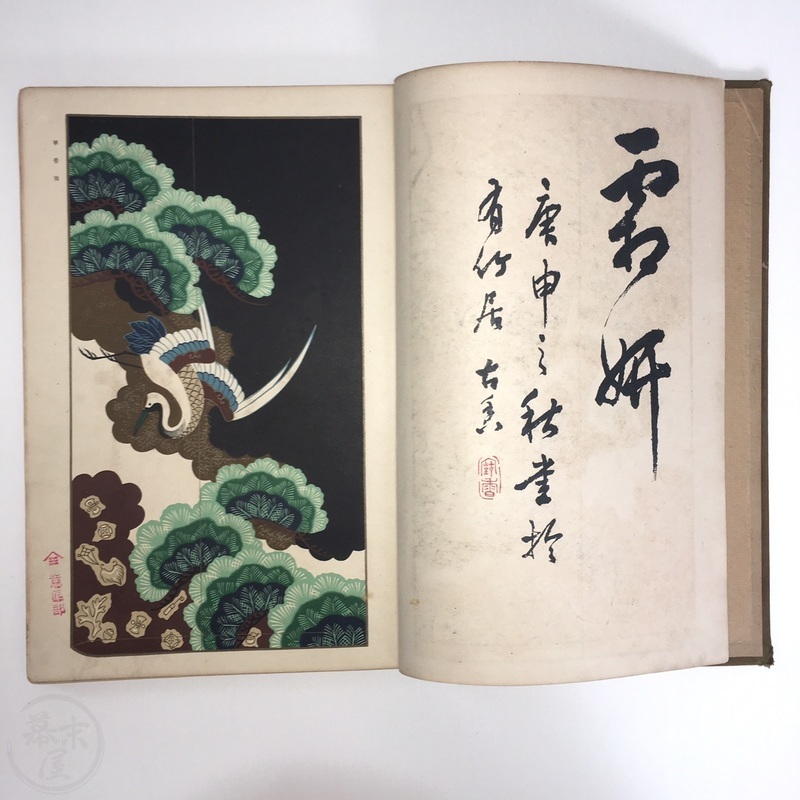 霜妍
庚申之秋書於
有竹居 古香
幕末屋